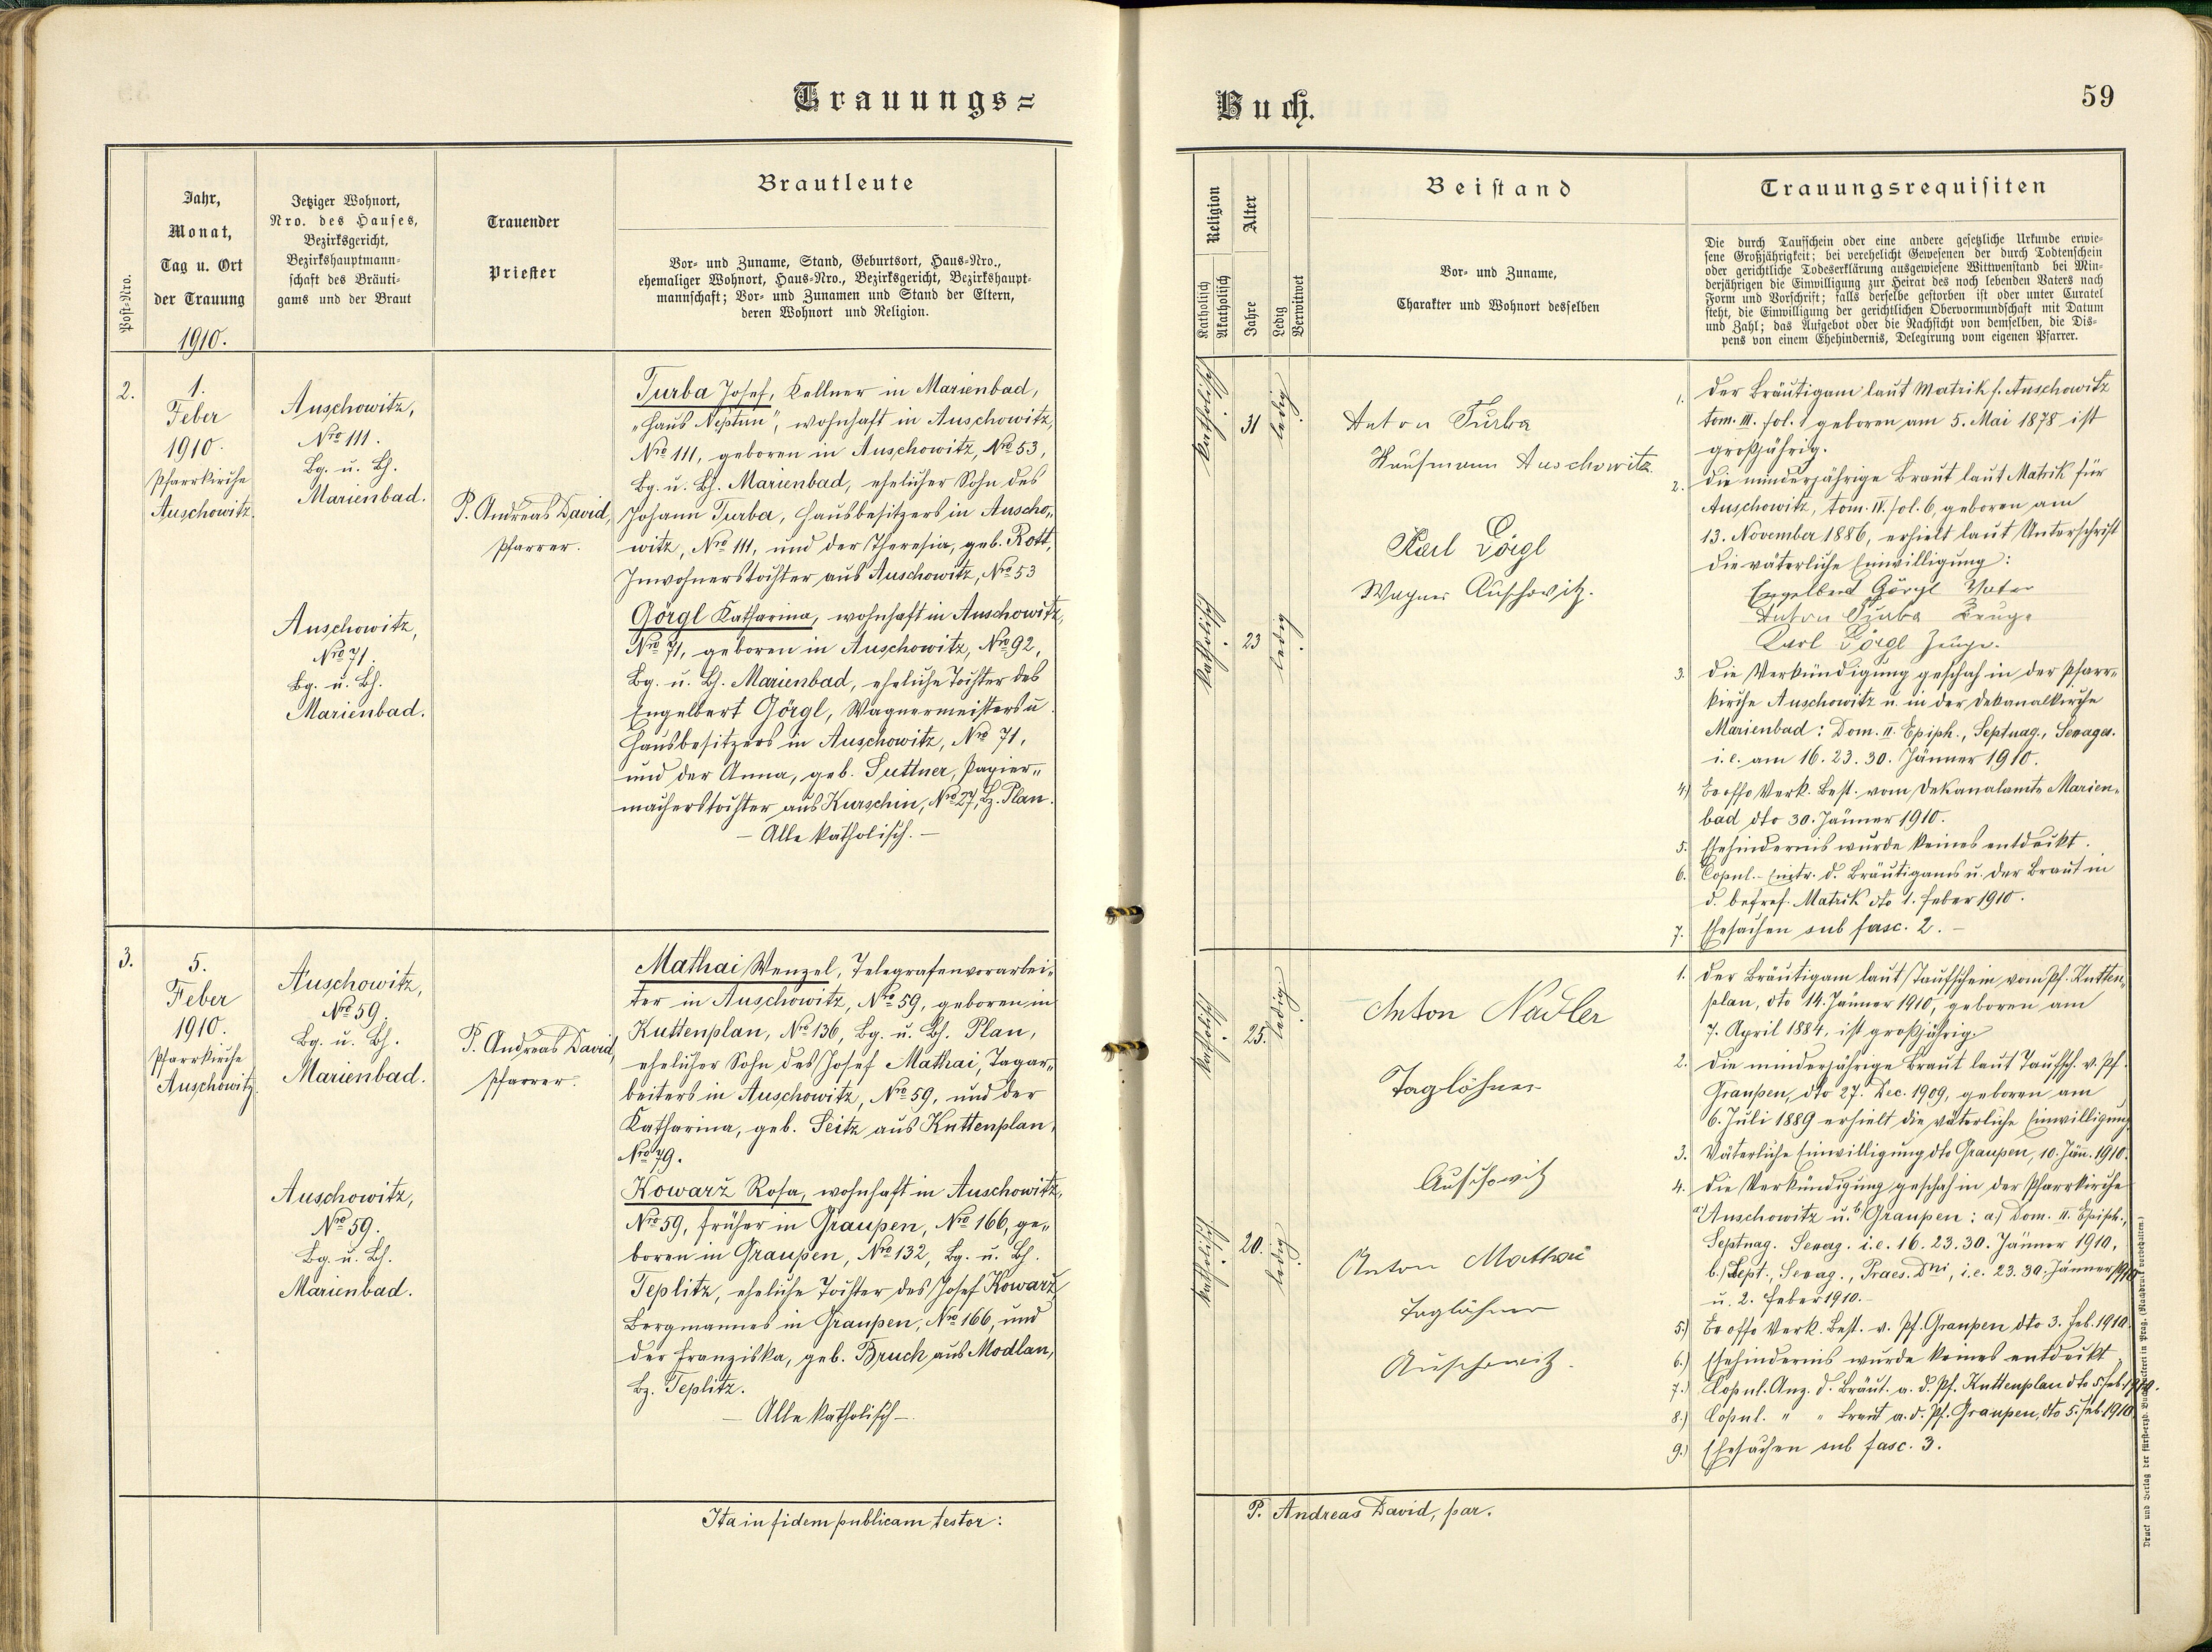 Trauungs=
Jahr,
Monat,
Tag u. Ort
der Trauung
1910.
Post-Nro.
Jetziger Wohnort,
Nro. des Hauses,
Bezirksgericht,
Bezirkshauptmann-
schaft des Bräuti-
gams und der Braut
Trauender
Priester
Brautleute
Vor- und Zuname, Stand, Geburtsort, Haus-Nro.,
ehemaliger Wohnort, Haus-Nro., Bezirksgericht, Bezirkshaupt-
mannschaft; Vor- und Zunamen und Stand der Eltern,
deren Wohnort und Religion.
2.
1.
Feber
1910.
Pfarrkirche
Auschowitz.
Auschowitz,
Nro 111.
Bg. u. Bh.
Marienbad.
P. Andreas David,
Pfarrer.
Turba Josef, Kellner in Marienbad,
„Haus Neptun", wohnhaft in Auschowitz,
Nro 111, geboren in Auschowitz, Nro 53,
Bg. u. Bh. Marienbad, ehelicher Sohn des
Johann Turba, Hausbesitzers in Auscho„
witz, Nro 111, und der Theresia, geb. Rott,
Inwohnerstochter aus Auschowitz, Nro 53
Auschowitz,
Nro 71.
Bg. u. Bh.
Marienbad.
Görgl Katharina, wohnhaft in Auschowitz,
Nro 71, geboren in Auschowitz, Nro 92,
Bg. u. Bh. Marienbad, eheliche Tochter des
Engelbert Görgl, Wagnermeisters u.
Hausbesitzers in Auschowitz, Nro 71,
und der Anna, geb. Suttner, Papier„
macherstochter aus Kurschin, Nro 27, Bz. Plan.
— Alle katholisch. —
3.
5.
Feber
1910.
Pfarrkirche
Auschowitz.
Auschowitz,
Nro 59.
Bg. u. Bh.
Marienbad.
P. Andreas David,
Pfarrer.
Mathai Wenzel, Telegrafenvorarbei„
ter in Auschowitz, Nro 59, geboren in
Kuttenplan, Nro 136, Bg. u. Bh. Plan,
ehelicher Sohn des Josef Mathai, Tagar„
beiters in Auschowitz, Nro 59, und der
Katharina, geb. Seitz aus Kuttenplan,
Nro 79.
Auschowitz,
Nro 59.
Bg. u. Bh.
Marienbad.
Kowarž Rosa, wohnhaft in Auschowitz,
Nro 59, früher in Graupen, Nro 166, ge„
boren in Graupen, Nro 132, Bg. u. Bh.
Teplitz, eheliche Tochter des Josef Kowarž
Bergmannes in Graupen, Nro 166, und
der Franziska, geb. Bruch aus Modlan,
Bz. Teplitz.
— Alle katholisch —.
Ita in fidem publicam testor:
Buch.
59
Religion
Katholisch
Akatholisch
Alter
Jahre
Ledig
Verwitwet
Beistand
Vor- und Zuname,
Charakter und Wohnort desselben
Trauungsrequisiten
Die durch Taufschein oder eine andere gesetzliche Urkunde erwie-
sene Großjährigkeit; bei verehelicht Gewesenen der durch Todtenschein
oder gerichtliche Todeserklärung ausgewiesene Wittwenstand bei Min-
derjährigen die Einwilligung zur Heirat des noch lebenden Vaters nach
Form und Vorschrift; falls derselbe gestorben ist oder unter Curatel
steht, die Einwilligung der gerichtlichen Obervormundschaft mit Datum
und Zahl; das Aufgebot oder die Nachsicht von demselben, die Dis-
pens von einem Ehehindernis, Delegirung vom eigenen Pfarrer.
katholisch
31
ledig
Anton Turba
Kaufmann Auschowitz
Karl Görgl
Wagner Auschowitz.
katholisch
23
ledig
1. Der Bräutigam laut Matrik f. Auschowitz
tom. III. fol. 1 geboren am 5. Mai 1878 ist
großjährig.
2. Die minderjährige Braut laut Matrik für
Auschowitz, tom. IV. fol. 6, geboren am
13. November 1886, erhielt laut Unterschrift
die väterliche Einwilligung:
Engelbert Görgl Vater
Anton Turba Zeuge
Karl Görgl Zeuge.
3. Die Verkündigung geschah in der Pfarr„
kirche Auschowitz u. in der Dekanalkirche
Marienbad: Dom. II. Epiph., Septuag., Sexages.
i. e. am 16. 23. 30. Jänner 1910.
4) Ex offo Verk. Best. vom Dekanalamte Marien„
bad dto 30. Jänner 1910.
5. Ehehindernis wurde keines entdeckt.
6. Copul.- d. Bräutigams u. der Braut in
d. Matrik dto 1. Feber 1910.
7. Ehesachen sub fasc. 2. —
katholisch
25.
ledig
Anton Nadler
Taglöhner
Auschowitz
katholisch
20.
ledig
Anton Mathai
Taglöhner
Auschowitz.
1. Der Bräutigam laut Taufschein vom Pf. Kutten„
plan, dto 14. Jänner 1910, geboren am
7. April 1884, ist großjährig
2. Die minderjährige Braut laut Taufsch. v. Pf.
Graupen, dto 27. Dec. 1909, geboren am
6. Juli 1889 erhielt die väterliche Einwilligung
3. Väterliche Einwilligung dto Graupen, 10. Jän. 1910.
4. Die Verkündigung geschah in der Pfarrkirche
a) Auschowitz u. b) Graupen: a.) Dom. II. Epiph.,
Septuag. Sexag. i. e. 16. 23. 30. Jänner 1910,
b.) Sept., Sexag., Praes. Dni, i. e. 23. 30. Jänner 1910
u. 2. Feber 1910. —
5.) Ex offo Verk. Best. v. Pf. Graupen dto 3. Feb. 1910.
6.) Ehehindernis wurde keines entdeckt
7.) Copul. Anz. d. Bräut. a. d. Pf. Kuttenplan dto 5. Feb. 1910.
8.) Copul. " " Braut a. d. Pf. Graupen, dto 5. Feb. 1910
9.) Ehesachen sub fasc. 3.
P. Andreas David, par.
Druck und Verlag der fürst-erzb. Buchdruckerei in Prag. (Nachdruck vorbehalten.)